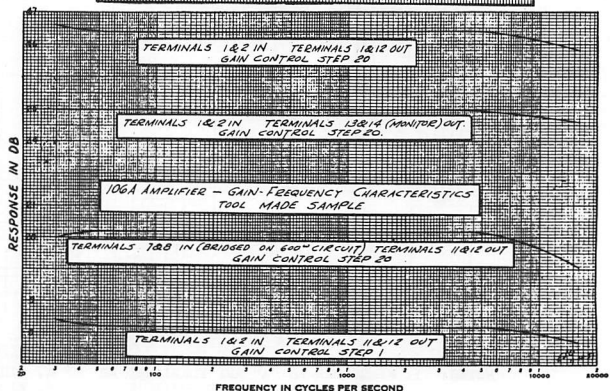 47
46
TERMINALS 1&2 IN TERMINALS 1&12 OUT
GAIN CONTROL STEP 20
TERMINALS 1&2 IN TERMINALS 13&14 (MONITOR) OUT
GAIN CONTROL STEP 20.
RESPONSE IN DB
106A AMPLIFIER — GAIN-FREQUENCY CHARACTERISTICS
TOOL MADE SAMPLE
TERMINALS 7&8 IN (BRIDGED ON 600~ CIRCUIT) TERMINALS 11&12 OUT
GAIN CONTROL STEP 20
TERMINALS 1&2 IN TERMINALS 11&12 OUT
GAIN CONTROL STEP 1
20 3 4 5 6 8 100 2 3 4 5 6 8 1000 2 3 4 5 6 8 10000 20000
FREQUENCY IN CYCLES PER SECOND